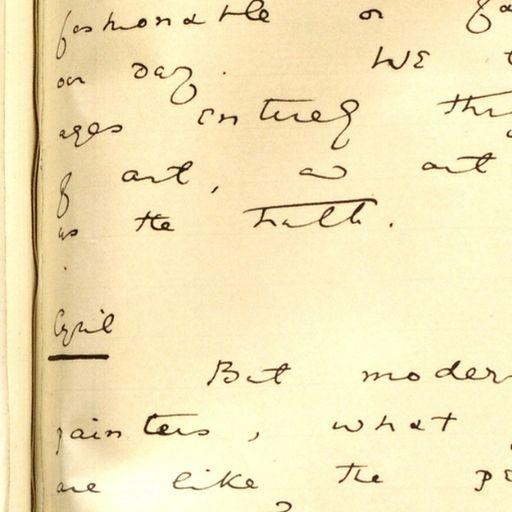 fashionable or
our day. We
ages entirely thr
of art, and art
us the truth.
Cyril
But moder
painters, what
are like the pe